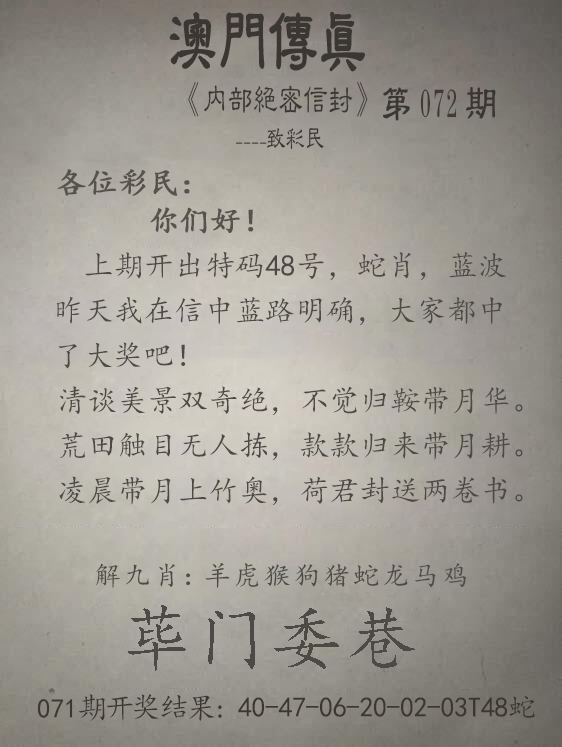 澳門傳眞
《内部絕密信封》第072期
----致彩民
各位彩民：
你们好！
上期开出特码48号，蛇肖，蓝波
昨天我在信中蓝路明确，大家都中
了大奖吧！
清谈美景双奇绝，不觉归鞍带月华。
荒田触目无人拣，款款归来带月耕。
凌晨带月上竹奥，荷君封送两卷书。
解九肖：羊虎猴狗猪蛇龙马鸡
荜门委巷
071期开奖结果：40-47-06-20-02-03T48蛇